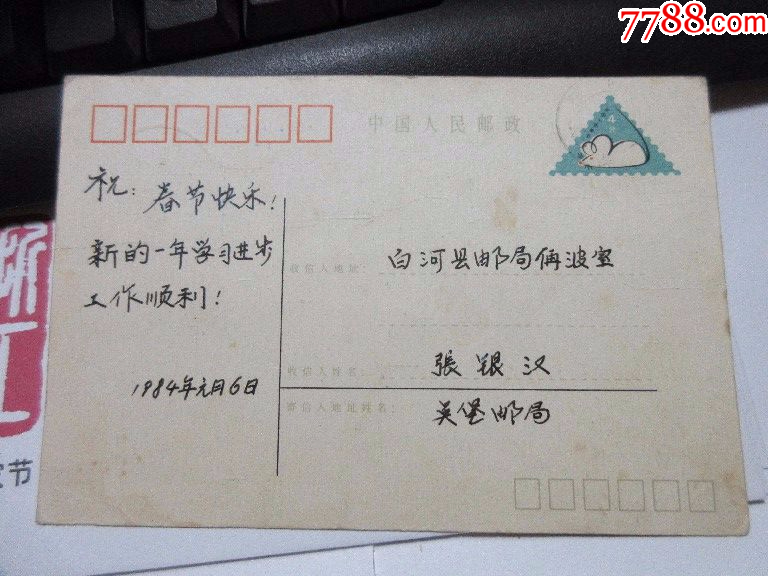 7788.com
中国人民邮政
4分
祝：春节快乐！
新的一年学习进步
工作顺利！
1984年元月6日
收信人地址：
白河县邮局侢波室
收信人姓名：
張银汉
寄信人地址姓名：
吴堡邮局
节